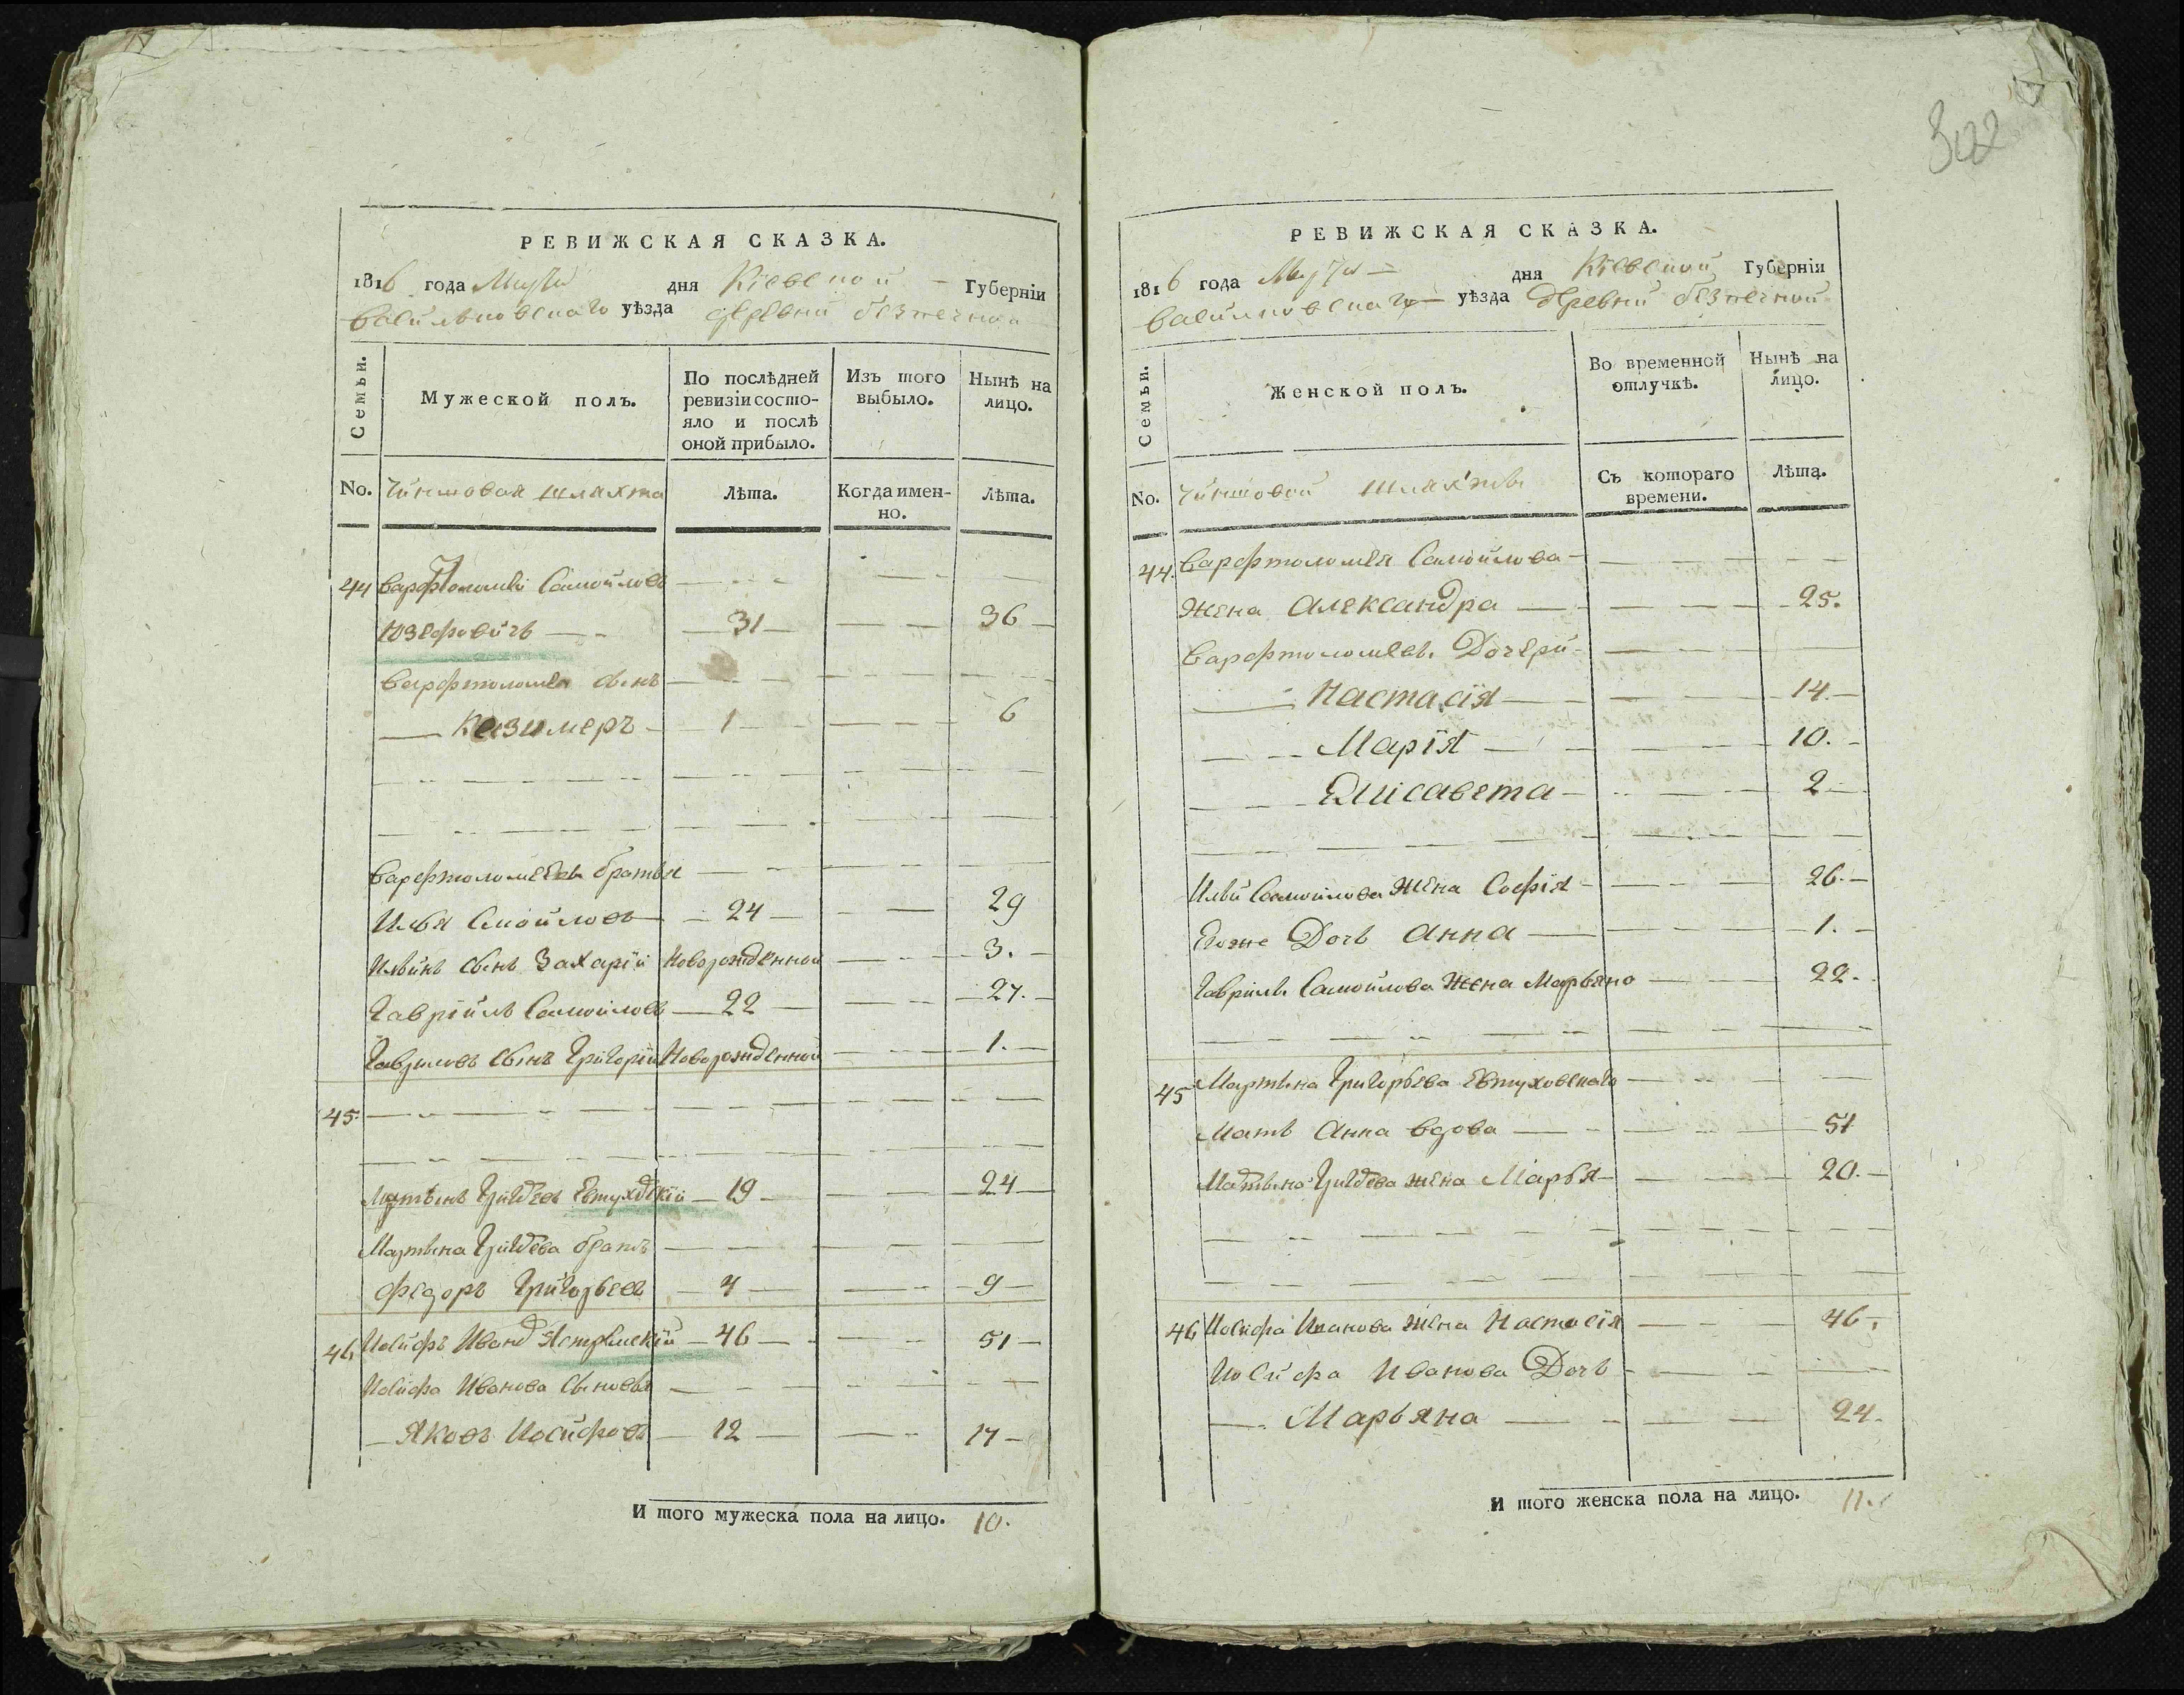 РЕВИЖСКАЯ СКАЗКА.
1816 года Марта дня Кіевской Губерніи
Васильковскаго уѣзда деревни безпечной
Семьи.
Мужеской полъ.
По послѣдней
ревизіи состо-
яло и послѣ
оной прибыло.
Изъ того
выбыло.
Нынѣ на
лицо.
No. Чиншовая шляхта Лѣта. Когда имен-
но. Лѣта.
44 Варфоломей Самойловъ
Юзефовичъ 31 36
Варфтоломея сынъ
Казимеръ 1 6
Варфтоломеевы братья
Илья Смойловъ 24 29
Ильинъ сынъ Захарій Новорожденной 3.
Гавріилъ Самойловъ 22 27.
Гавриловъ сынъ Григорій Новорожденной 1.
45
Мартынъ Григорьев Евтуховскій 19 24
Мартына Григорьева братъ
Федоръ Григорьевъ 4 9
46 Иосифъ Иванов Ястрембскій 46 51
Иосифа Иванова сыновья
Яковъ Иосифовъ 12 17
И того мужеска пола на лицо. 10.
302
РЕВИЖСКАЯ СКАЗКА.
1816 года Марта дня Кіевской Губерніи
Васильковскаго уѣзда деревни безпечной
Семьи.
Женской полъ.
Во временной
отлучкѣ.
Нынѣ на
лицо.
No. Чиншовой шляхты Съ котораго
времени. Лѣта.
44. Варфтоломея Самойлова
жена Александра 25.
Варфтоломеев. Дочери
Настасія 14.
Марія 10.
Елисавета 2
Ильи Самойлова жена Софія 26.
Егоже Дочь Анна 1.
Гавріила Самойлова жена Марьяна 22.
45 Мартына Григорьева Евтуховскаго
мать Анна вдова 51
Мартына Григорьева жена Марья 20.
46 Иосифа Иванова жена Настасія 46.
Иосифа Иванова Дочь
Марьяна 24.
И того женска пола на лицо. 11.